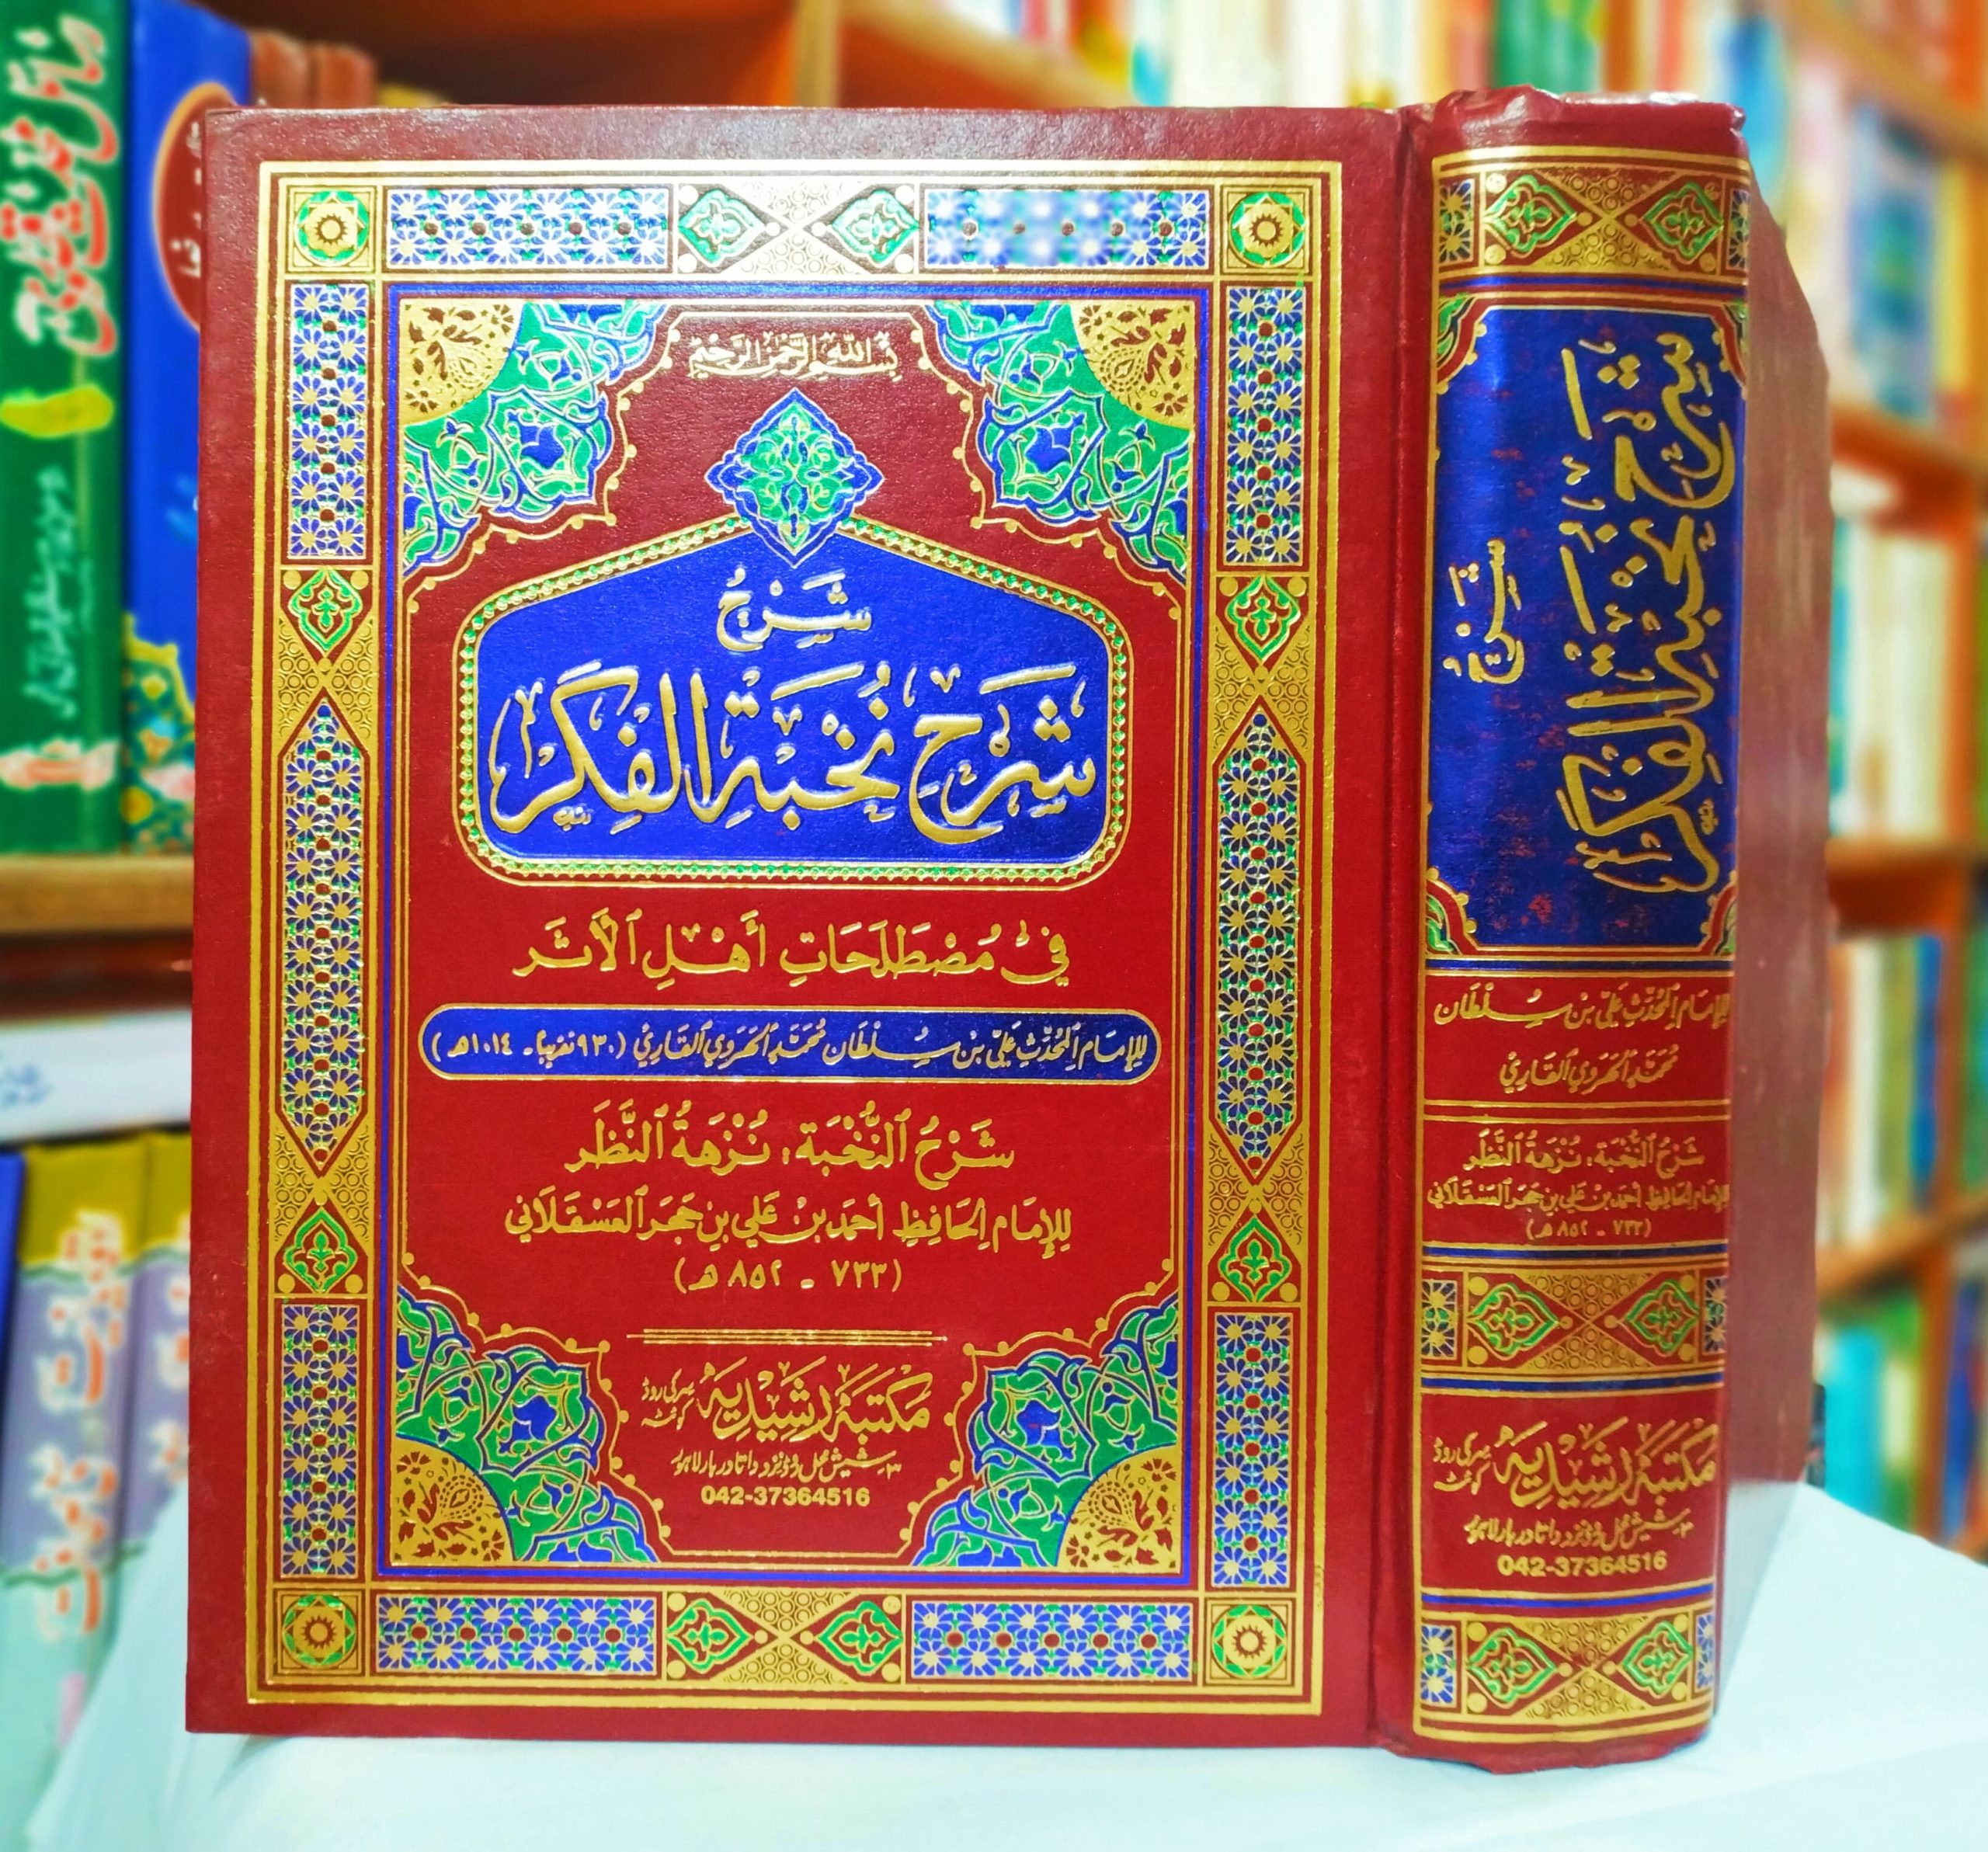 بِسْمِ اللهِ الرَّحْمٰنِ الرَّحِيْمِ
شَرْحُ
شَرْحِ نُخْبَةِ الْفِكَرِ
فِي مُصْطَلَحَاتِ أَهْلِ الْأَثَرَ
لِلإِمَامِ الْمُحَدِّثِ عَلِيِّ بْنِ سُلْطَان مُحَمَّدِ الْهَرَوِي الْقَارِيْ (٩٣٠ تقريبًا - ١٠١٤هـ)
شَرْحُ النُّخْبَة، نُزْهَةُ النَّظَر
لِلإِمَامِ الْحَافِظِ أَحمَد بنْ عَلِي بنِ حَجَر الْعَسْقَلَاني
(٧٣٣ - ٨٥٢ هـ)
مكتبَة رشيْديَه سرکی روڈ کوئٹہ
٣ شیش محل روڈ نزد داتا دربار لاہور
042-37364516
شَرْحُ
شَرْحِ نُخْبَةِ الْفِكَرِ
لِلإِمَامِ الْمُحَدِّثِ عَلِيِّ بْنِ سُلْطَان
مُحَمَّدِ الْهَرَوِي الْقَارِيْ
شَرْحُ النُّخْبَة، نُزْهَةُ النَّظَر
لِلإِمَامِ الْحَافِظِ أَحمَد بنْ عَلِي بنِ حَجَر الْعَسْقَلَاني
(٧٣٣ - ٨٥٢ هـ)
مكتبَة رشيْديَه سرکی روڈ کوئٹہ
٣ شیش محل روڈ نزد داتا دربار لاہور
042-37364516